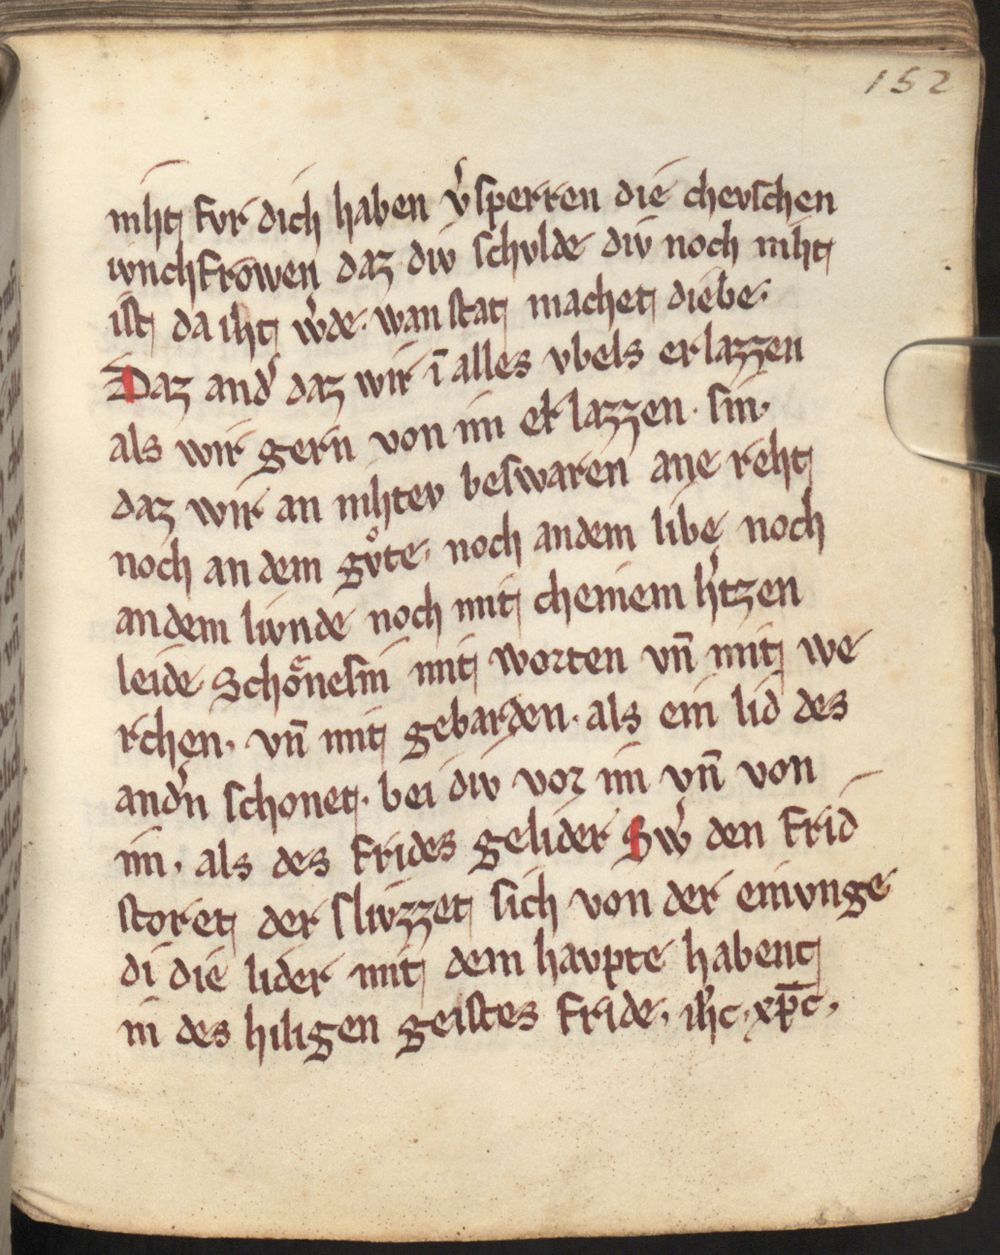 152
niht fvr dich haben v͛sperren die chevschen
ivnchfrowen daz div schvlde div noch niht
ist da iht w͛de. wan stat machet diebe.
Daz and͛ daz wir ī alles vbels erlazzen
als wir gern von im er lazzen. sin.
daz wir an nihtev beswaren ane reht
noch an dem gv̊te. noch andem libe noch
andem livnde noch mit cheinem h͛tzen
leide Schonesin mit worten vn̄ mit we
rchen. vn̄ mit gebarden. als ein lid des
and͛n schonet. bei div vor im vn̄ von
im. als des frides gelider Sw͛ den frid
storet der slivzzet sich von der einvnge
di die lider mit dem havpte habent
in des hiligen geistes fride. ih̄c. xp̄c.